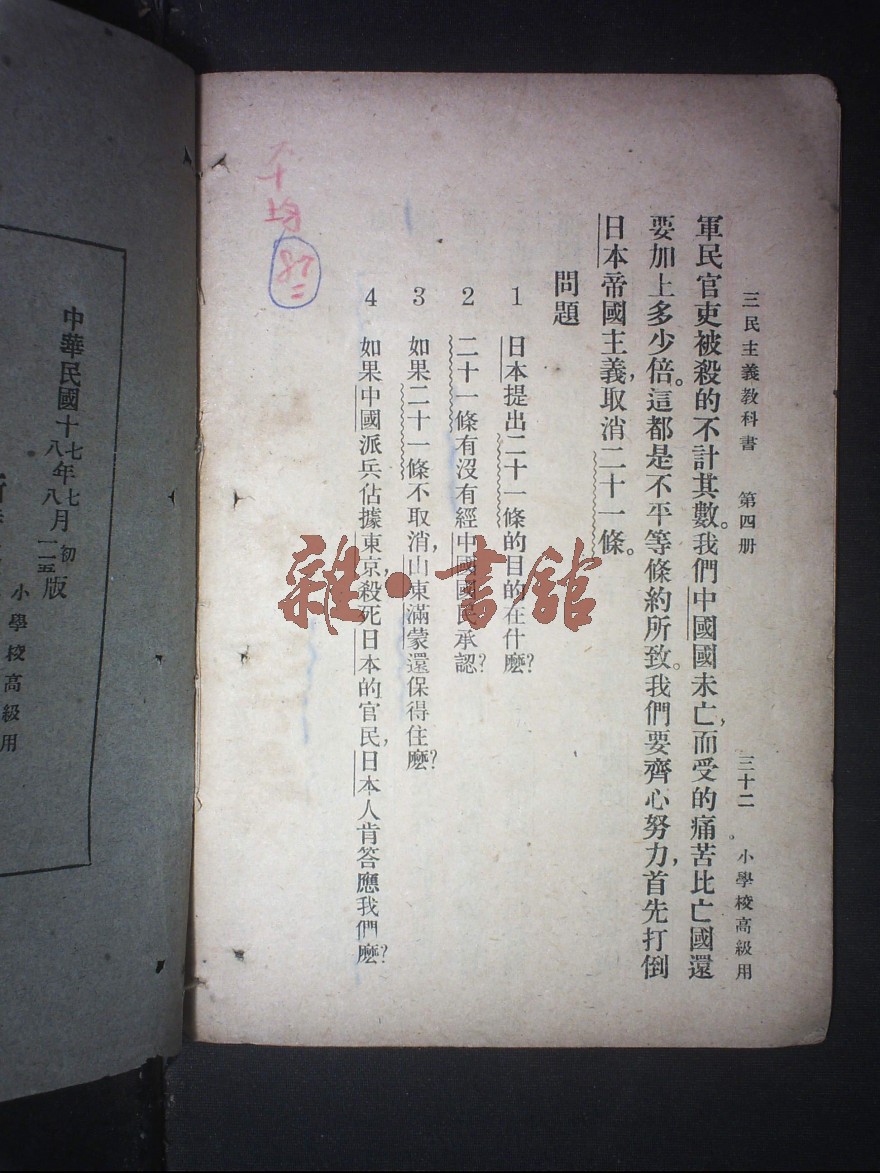 三民主義教科書 第四册 三十二 小學校高級用
軍民官吏被殺的不計其數。我們中國國未亡,而受的痛苦比亡國還
要加上多少倍。這都是不平等條約所致。我們要齊心努力,首先打倒
日本帝國主義,取消二十一條。
問題
1 日本提出二十一條的目的在什麼?
2 二十一條有沒有經中國國民承認?
3 如果二十一條不取消,山東滿蒙還保得住麼?
4 如果中國派兵佔據東京,殺死日本的官民,日本人肯答應我們麼?
雜·書館
中華民國十七年七月初版
八 八 一五
小學校高級用